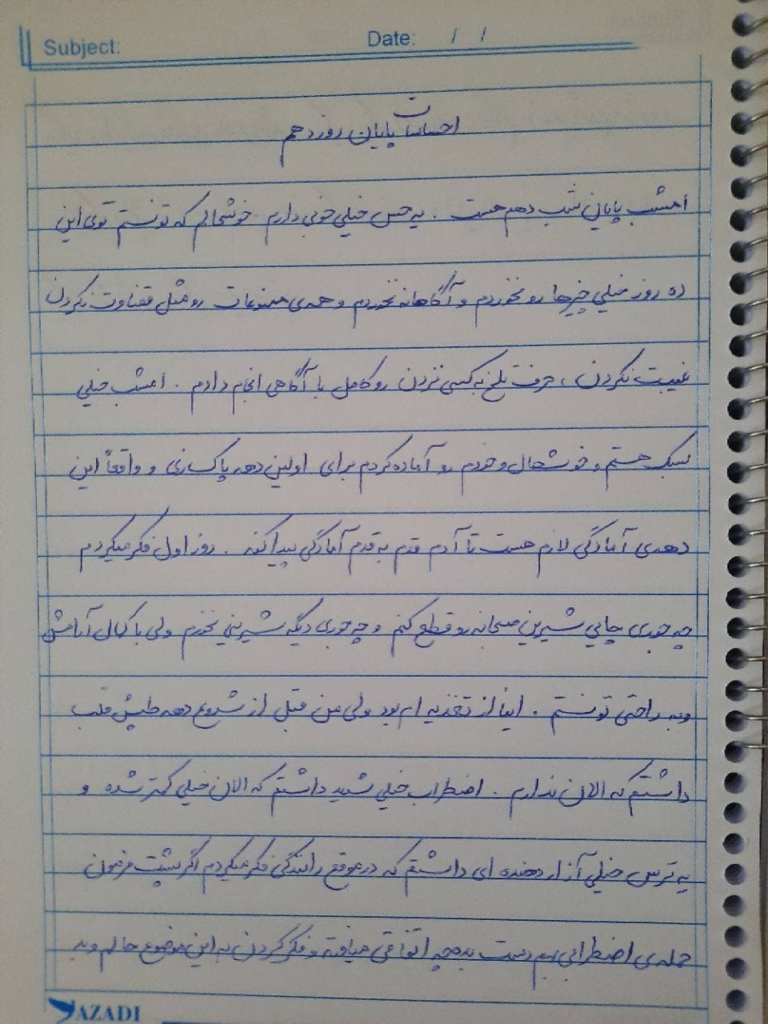 Subject:
Date: / /
احساسات پایان روز دهم
امشب پایان شب دهم هست . یه حس خیلی خوبی دارم . خوشحالم که تونستم توی این
ده روز خیلی چیزها رو نخوردم و آگاهانه نخوردم و همه‌ی ممنوعات رو مثل قضاوت نکردن
غیبت نکردن ، حرف تلخ به کسی نزدن رو کامل با آگاهی انجام دادم . امشب خیلی
سبک هستم و خوشحال و خودم رو آماده کردم برای اولین دهه پاکسازی و واقعاً این
دهه‌ی آمادگی لازم هست تا آدم قدم به قدم آمادگی پیدا کنه . روز اول فکر میکردم
چه جوری چایی شیرین صبحانه رو قطع کنم و چه جوری دیگه شیرینی نخورم ولی با کمال آرامش
و به راحتی تونستم . اینا از تغذیه ام بود ولی من قبل از شروع دهه طپش قلب
داشتم که الان ندارم . اضطراب خیلی شدید داشتم که الان خیلی کمتر شده و
یه ترس خیلی آزار دهنده ای داشتم که در موقع رانندگی فکر میکردم اگر پشت فرمون
حمله‌ی اضطرابی بهم دست بده چه اتفاقی میافته و فکر کردن به این موضوع حالم و بد
AZADI